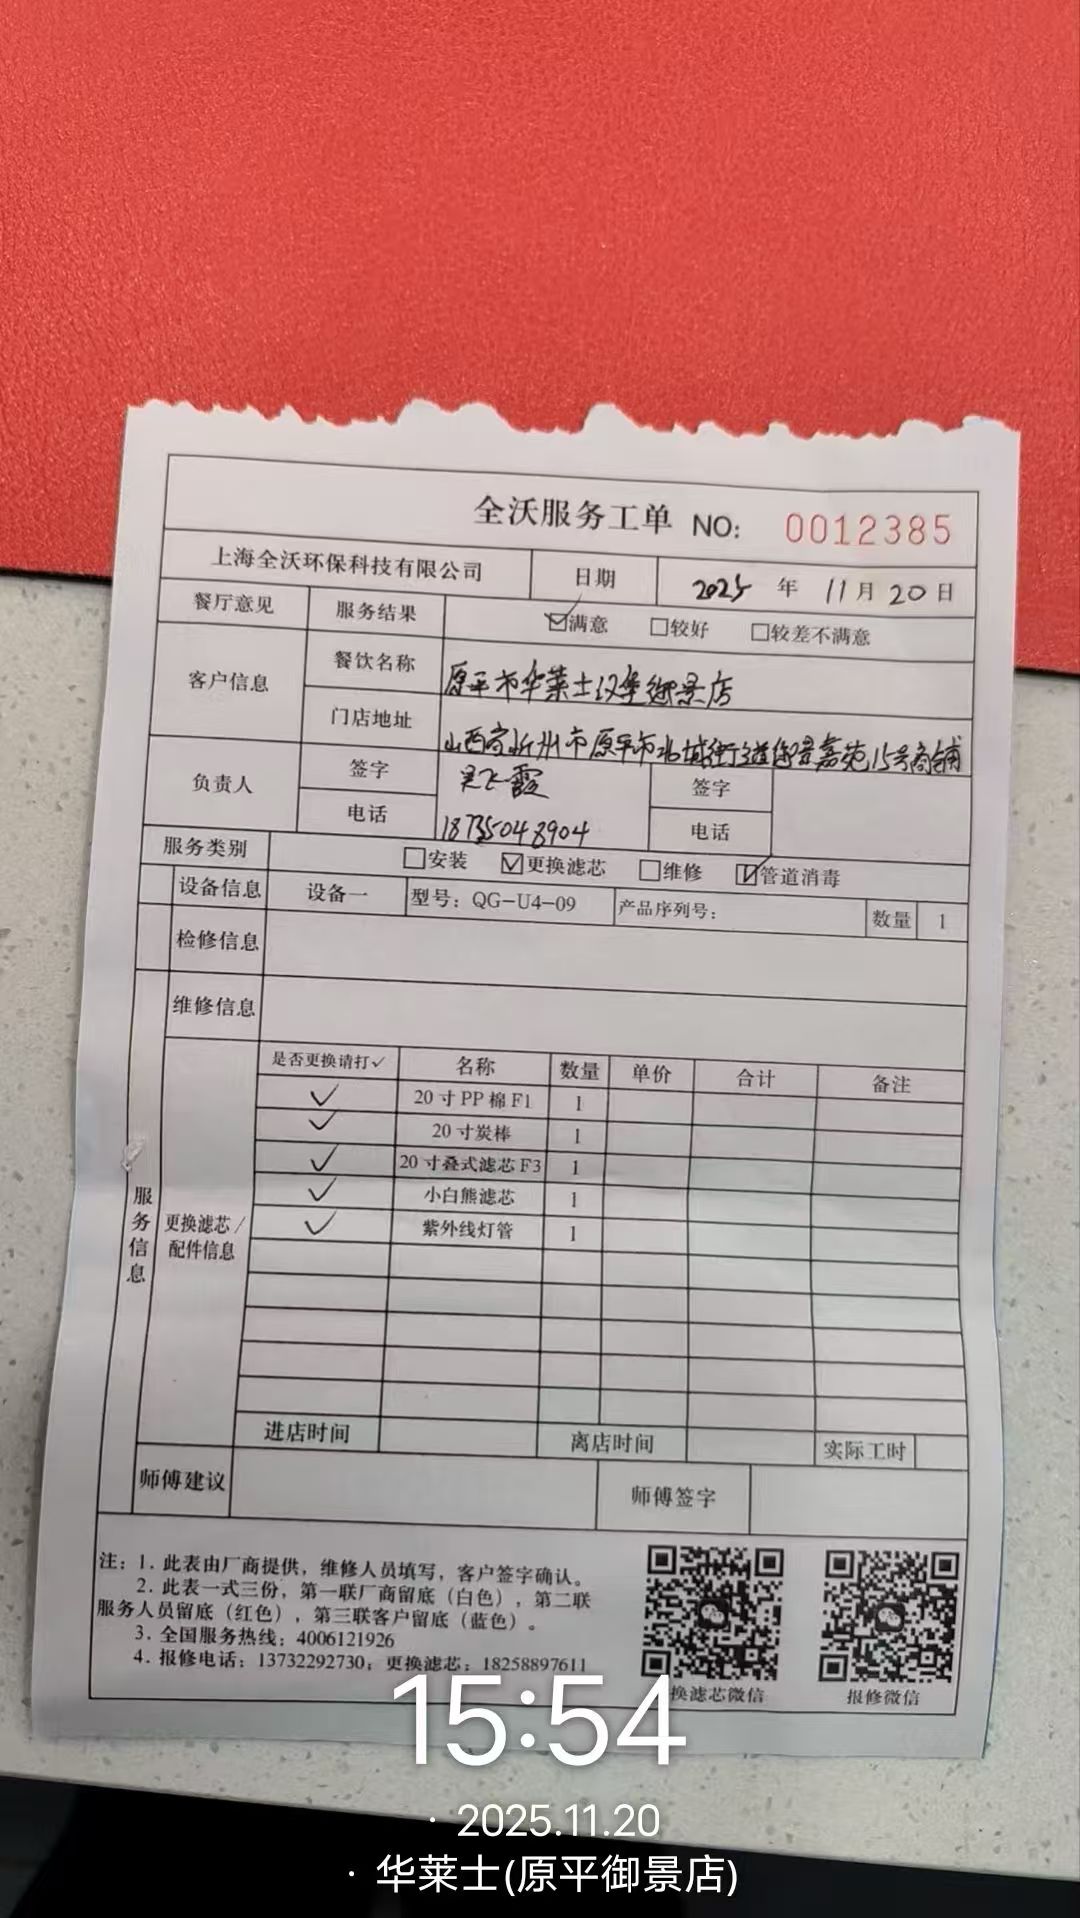 全沃服务工单 NO: 0012385
上海全沃环保科技有限公司 日期 2025 年 11 月 20 日
餐厅意见 服务结果 ☑满意 □较好 □较差不满意
客户信息 餐饮名称 原平市华莱士汉堡御景店
门店地址 山西省忻州市原平市北城街道御景嘉苑15号商铺
负责人 签字 飞霞 签字
电话 18735048904 电话
服务类别 □安装 ☑更换滤芯 □维修 ☑管道消毒
设备信息 设备一 型号: QG-U4-09 产品序列号: 数量 1
检修信息
维修信息
服务信息
更换滤芯/配件信息
是否更换请打✓ 名称 数量 单价 合计 备注
✓ 20寸PP棉F1 1
✓ 20寸炭棒 1
✓ 20寸叠式滤芯F3 1
✓ 小白熊滤芯 1
✓ 紫外线灯管 1
进店时间 离店时间 实际工时
师傅建议 师傅签字
注: 1. 此表由厂商提供，维修人员填写，客户签字确认。
2. 此表一式三份，第一联厂商留底（白色），第二联
服务人员留底（红色），第三联客户留底（蓝色）。
3. 全国服务热线: 4006121926
4. 报修电话: 13732292730; 更换滤芯: 18258897611
换滤芯微信 报修微信
15:54
· 2025.11.20
· 华莱士(原平御景店)